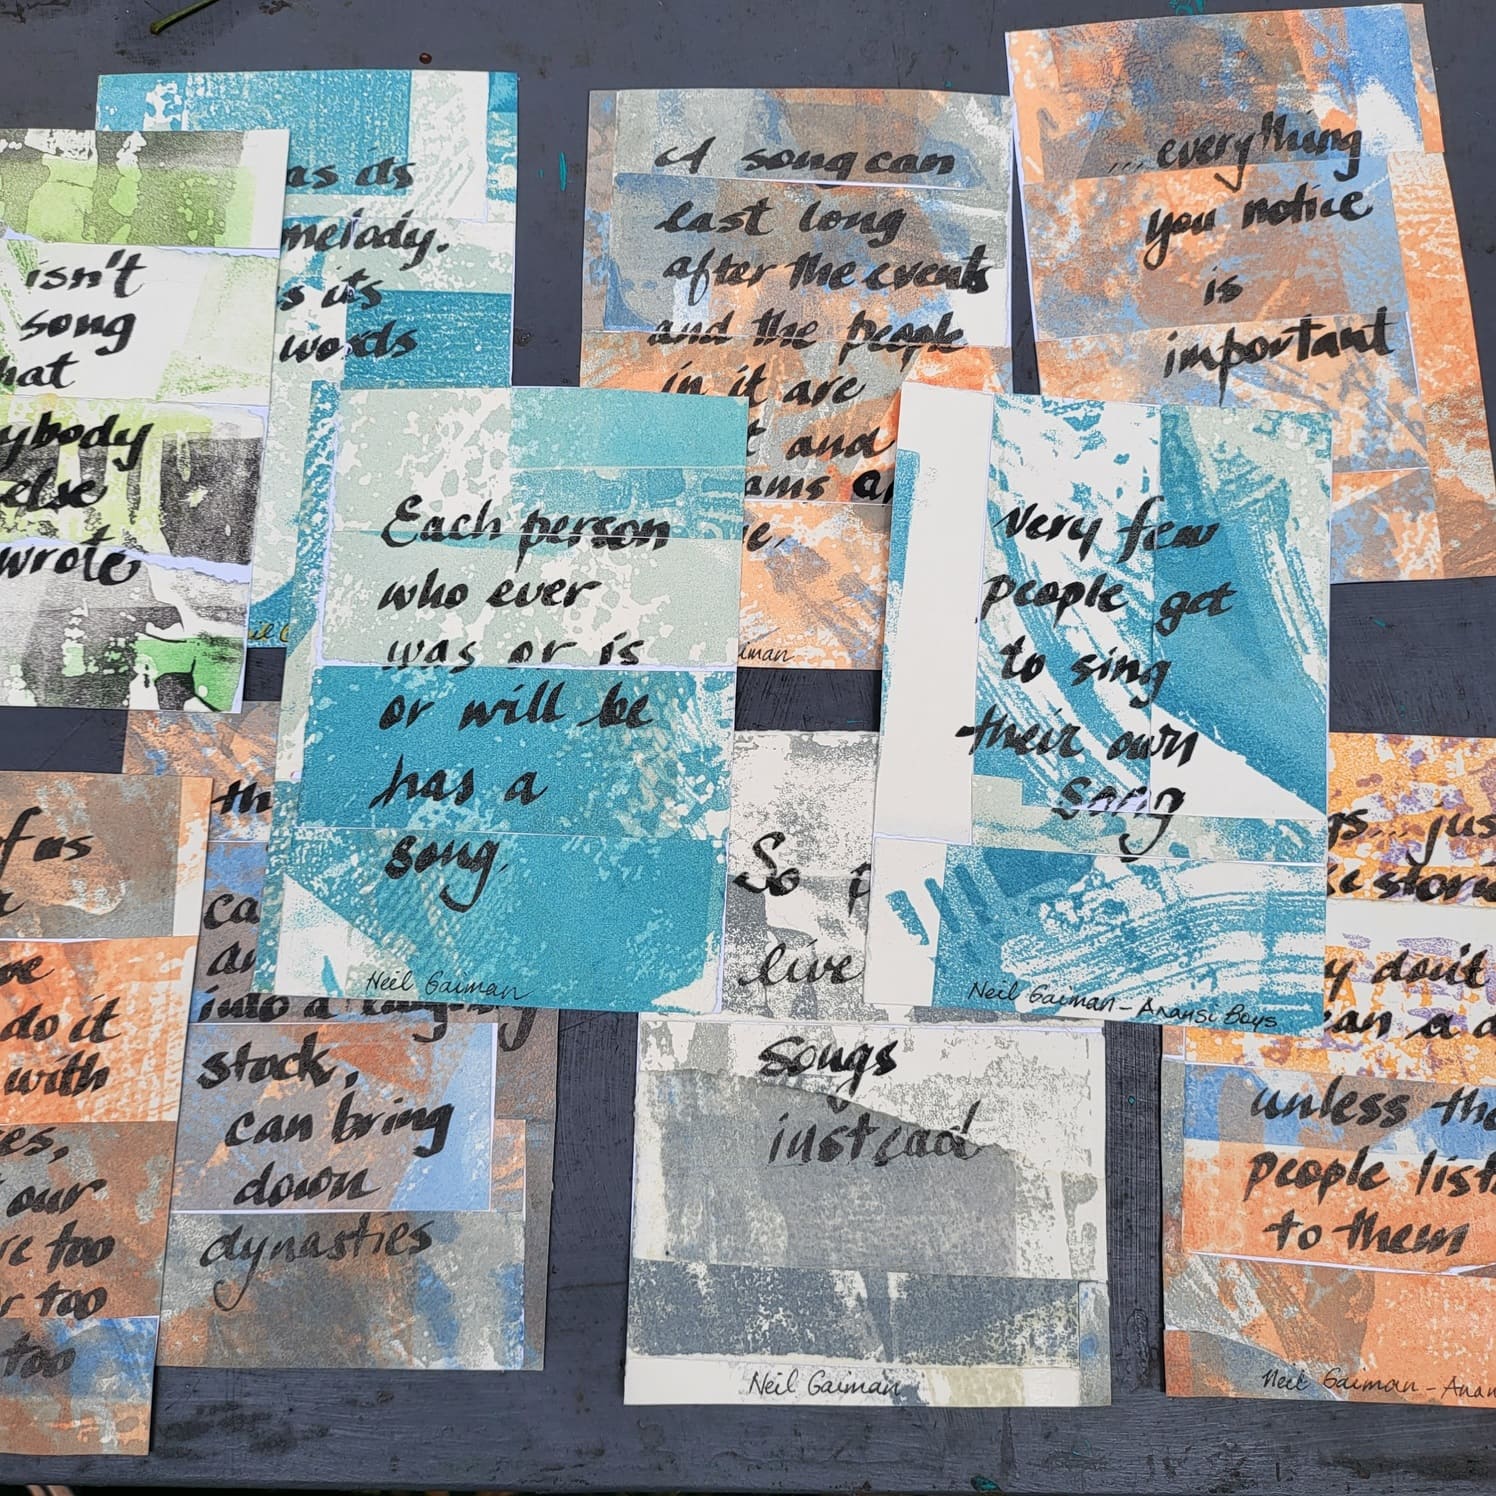 isn't
song
hat
ybody
else
wrote
as its
melody.
s its
words
A song can
last long
after the events
and the people
in it are
t and
ams a
e.
iman
...everything
you notice
is
important
Each person
who ever
was or is
or will be
has a
song.
Neil Gaiman
very few
people get
to sing
their own
song
Neil Gaiman - Anansi Boys
f us
ve
do it
with
es,
our
re too
r too
too
th
ca
an
into a laughing
stock,
can bring
down
dynasties
So p
live
songs
instead
Neil Gaiman
gs... jus
ke stori
y don't
ean a d
unless the
people list
to them
Neil Gaiman - Anan